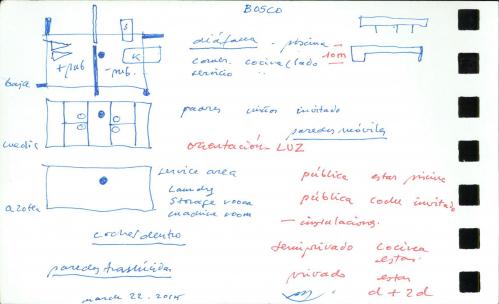 BOSCO
diáfana - piscina
10m
comer. cocina/lado
servicio
+ pub
- pub.
baja
padres niños invitado
paredes móviles
media
orientación LUZ
service area
Laundry
Storage room
machine room
azotea
pública estar piscina
pública invitado
- instalaciones.
semiprivado cocina
estar
privado estar
d + 2d
coches dentro
paredes traslúcidas
march 22. 2015